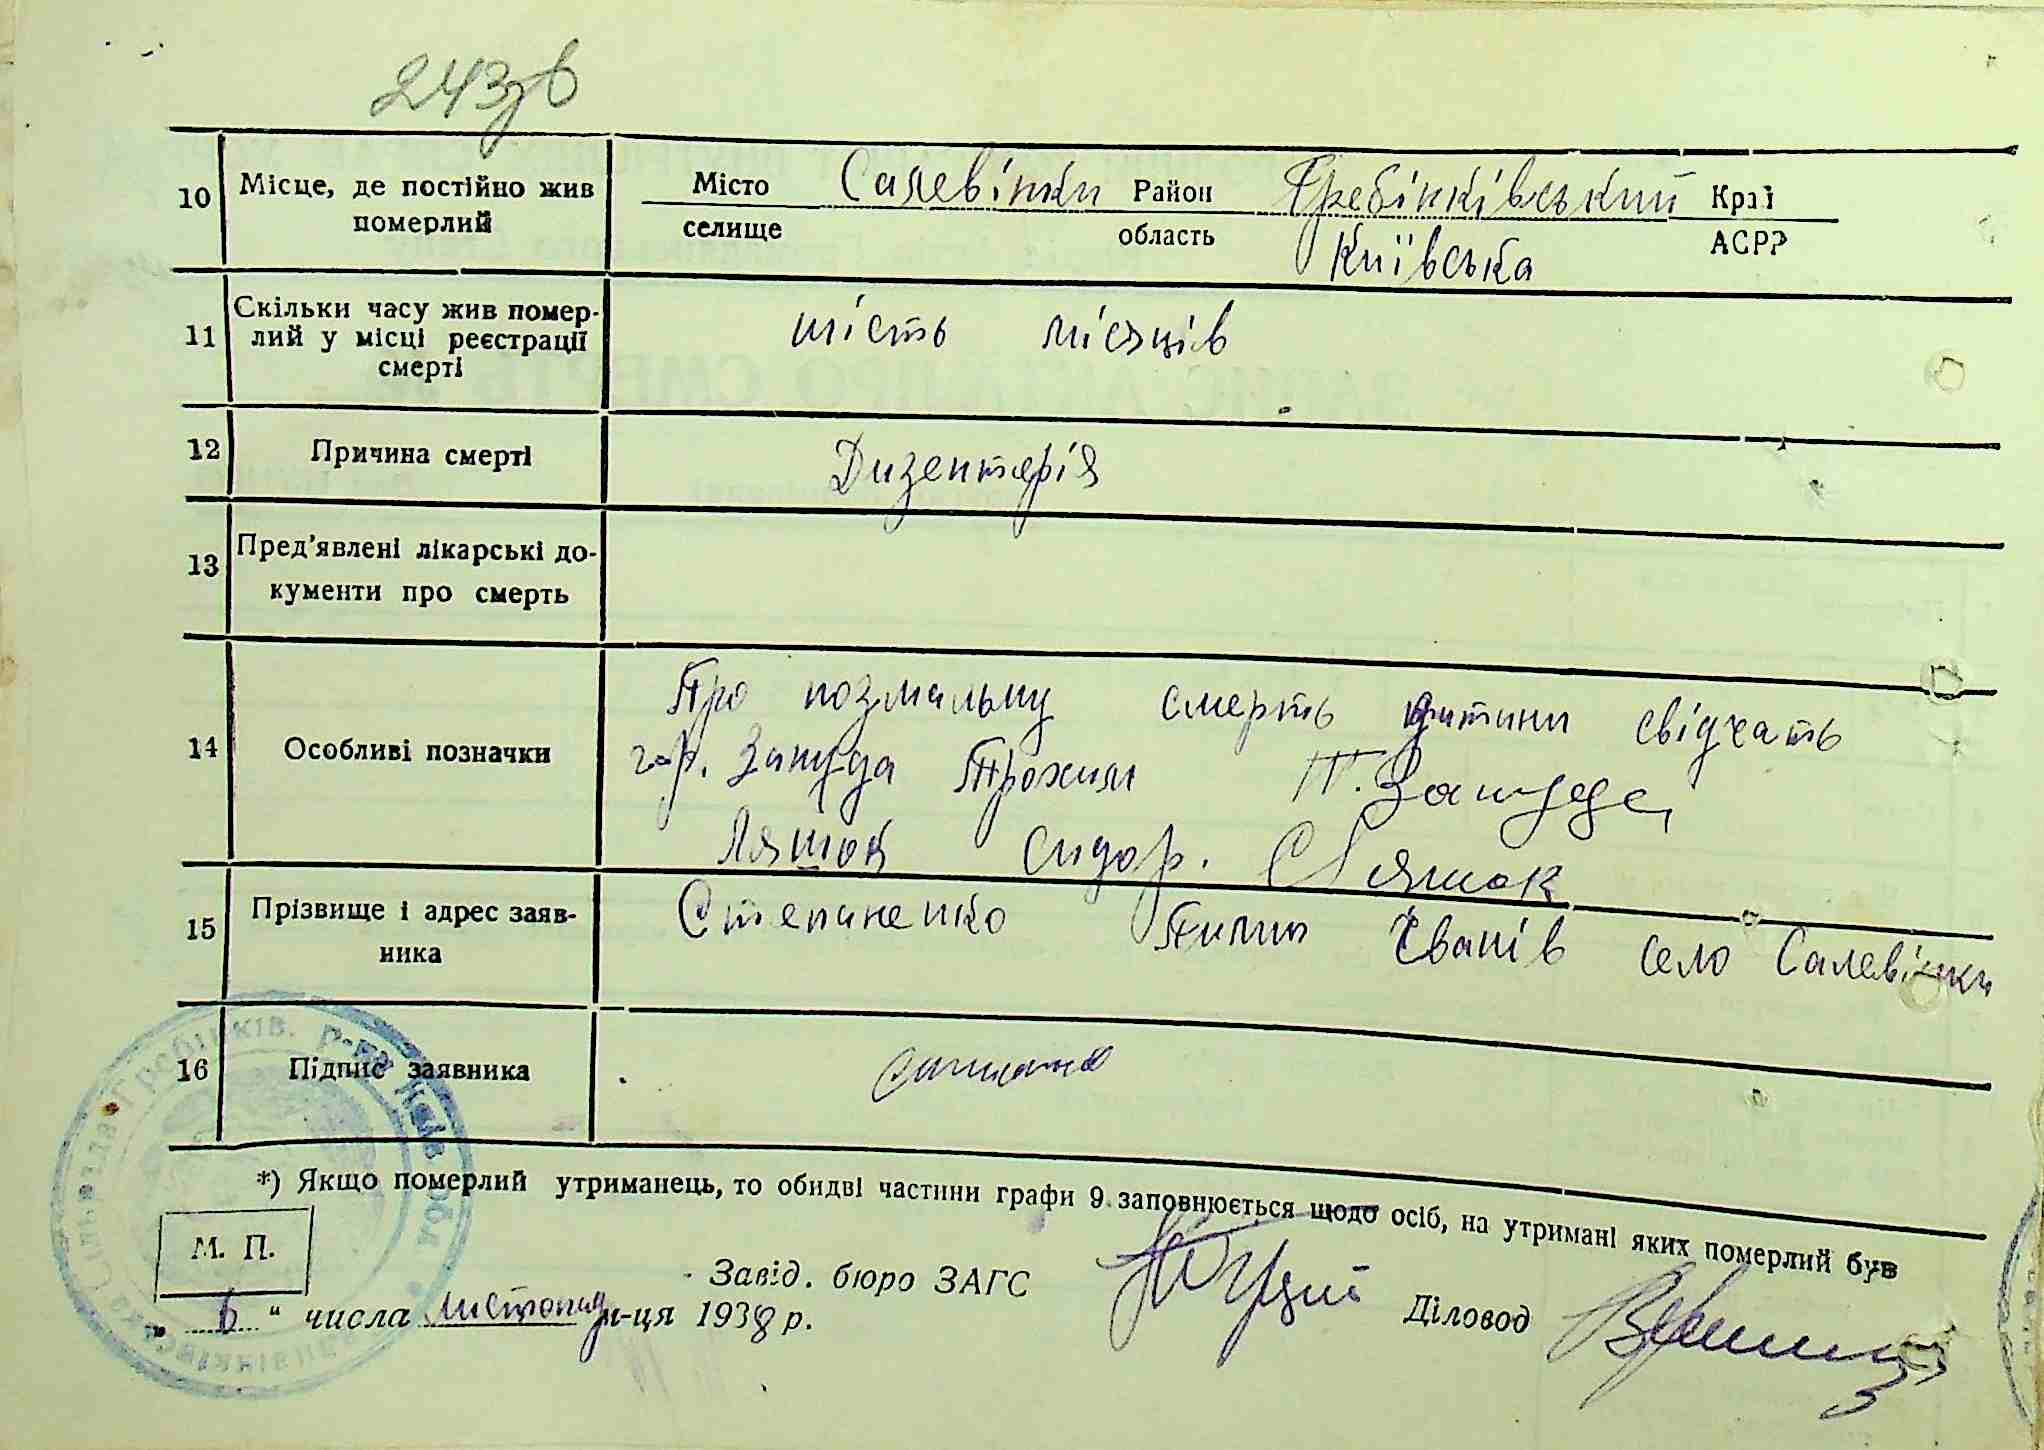 243зв
10 Місце, де постійно жив померлий
Місто Салевінки Район Гребінківський Край
селище область Київська АСРР
11 Скільки часу жив помер-
лий у місці реєстрації
смерті
шість місяців
12 Причина смерті Дизентерія
13 Пред'явлені лікарські до-
кументи про смерть
14 Особливі позначки
Про нозмальну смерть дитини свідчать
гр. Запуда Трохим Т. Запуда
Ляшок Сидор. С Ляшок
15 Прізвище і адрес заяв-
ника
Степаненко Пилип Іванів село Салевінки
16 Підпис заявника
*) Якщо померлий утриманець, то обидві частини графи 9 заповнюється щодо осіб, на утримані яких померлий був
М. П.
Завід. бюро ЗАГС
Діловод
„ 6 “ числа листопад м-ця 1938 р.